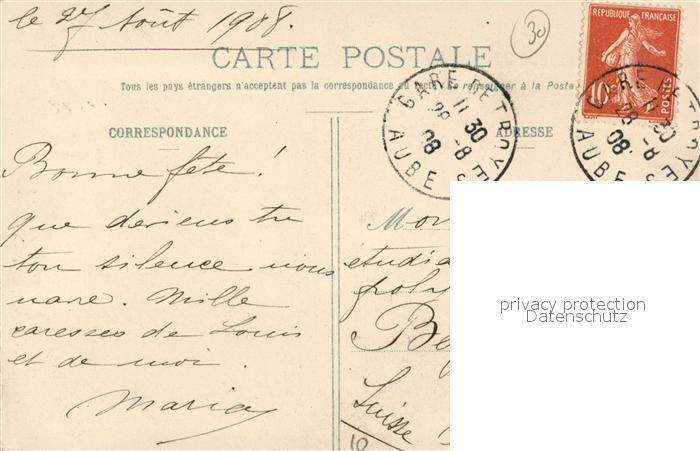 le 27 Août 1908.
30
CARTE POSTALE
Tous les pays étrangers n'acceptent pas la correspondance au recto (Se renseigner à la Poste)
REPUBLIQUE FRANÇAISE
10c
POSTES
GARE DE TROYES
11 30
28 -8
08
AUBE
GARE DE TROYES
11 30
28 -8
08
AUBE
CORRESPONDANCE
ADRESSE
Bonne fête !
que deviens tu
ton silence nous
navre. Mille
caresses de Louis
et de moi.
Maria
Mon
étudia
poly
Be
Suisse
10
privacy protection
Datenschutz